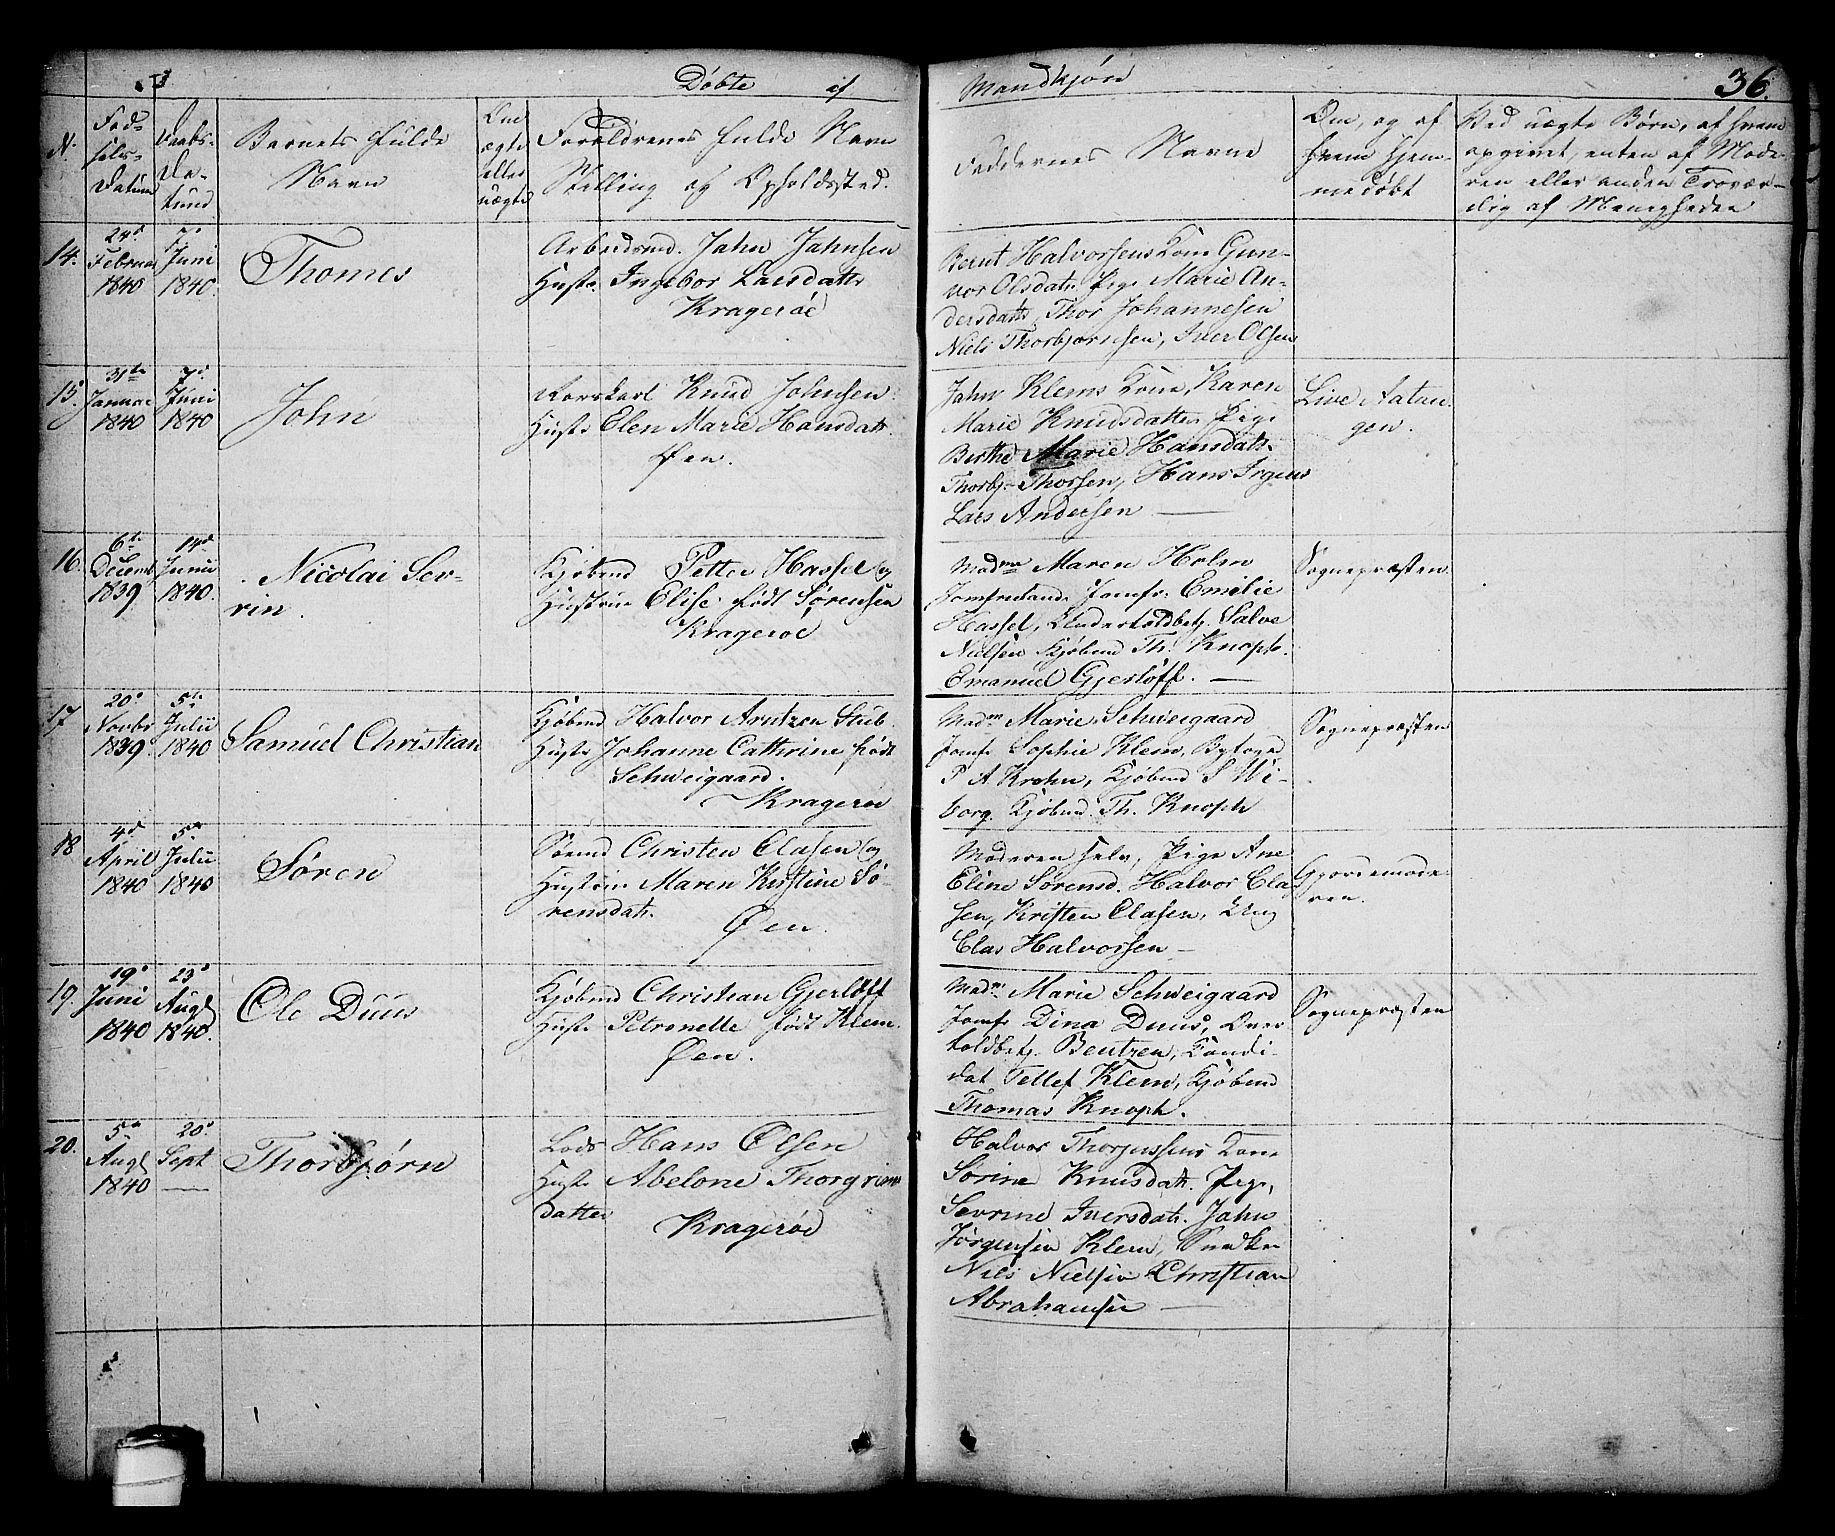 Døbte af Mandkjøn 36.
N. Fød-
sels-
Datum
Daabs-
Da-
tum
Barnets fulde
Navn
Om
ægte
eller
uægte
Forældrenes fulde Navn
Stilling og Opholdssted.
Faddernes Navne
Om, og af
hvem hjem-
medøbt
Ved uægte Børn, af hvem
opgivet, enten af Mode-
ren eller anden Trovær-
dig af Menigheden
14. 24d Februar 1840
7d Juni 1840.
Thomes
Arbeidsmd. Jahn Jahnsen
Hustr. Ingebor Larsdattr
Kragerøe
Bernt Halvorsens Kone Gun-
vor Olsdatr. Pige Marie An-
dersdattr, Thor Johannesen
Niels Thorbjørnsen, Iver Olsen
15. 31te Januar 1840
7d Juni 1840
John
Knud Johnsen
Hustr Elen Marie Hansdatr.
Øen.
Jahn Klems Kone, Karen
Marie Knudsdatter, Pige
Berthe Marie Hansdatr.
Thorbj. Thorsen, Hans Irgens
Lars Andersen —
Live Aatan-
gen.
16. 6te Decemb 1839
14d Juni 1840.
Nicolai Sev-
rin.
Kjøbmd Petter Hassel og
Hustrue Elise født Sørensen
Kragerøe
Madme Maren Holm
Jomfruland. Jomfr: Emilie
Hassel, Undertoldbetj. Salve
Nielsen Kjøbmd Th. Knoph.
Emanuel Gjerløff. —
Sognepræsten.
17 20d Novbr 1839.
5te Julii 1840
Samuel Christian
Kjøbmd Halvor Arntzen Stub
Hustr Johanne Cathrine født
Schweigaard.
Kragerøe
Madm Marie Schweigaard
Jomfr Sophie Klem, Bytoged
P A Krohn, Kjøbmd S Wi-
borg. Kjøbmd. Th. Knoph
Sognepræsten
18 4d April 1840
5te Julii 1840
Søren
Sømd Christen Olasen og
Hustrue Maren Kirstine Sø-
rensdatr.
Øen.
Moderen selv, Pige Ane
Eline Sørensd. Halvor Cla-
sen, Kristen Olasen, Ung
Clas Halvorsen —
Gjordemode-
ren.
19. 19d Juni 1840
23d Augl 1840.
Ole Duus
Kjøbmd Christian Gjerløff
Hustr Petronelle født Klem.
Øen.
Madm. Marie Schweigaard
Jomfr Dina Duus, Over
toldbetj. Bentzen, Kandi-
dat Tellef Klem, Kjøbmd
Thomas Knoph.
Sognepræsten
20. 5te Augl 1840
20d Sept —
Thorbjørn
Lods Hans Olsen
Hustr Abelone Thorgrims
datter
Kragerøe
Halvor Thorjussens Kone
Sørine Knudsdatr. Pige,
Sevrine Iversdatr. Jahn
Jørgensen Klem, Snedker
Nils Nielsen Christian
Abrahamsen —